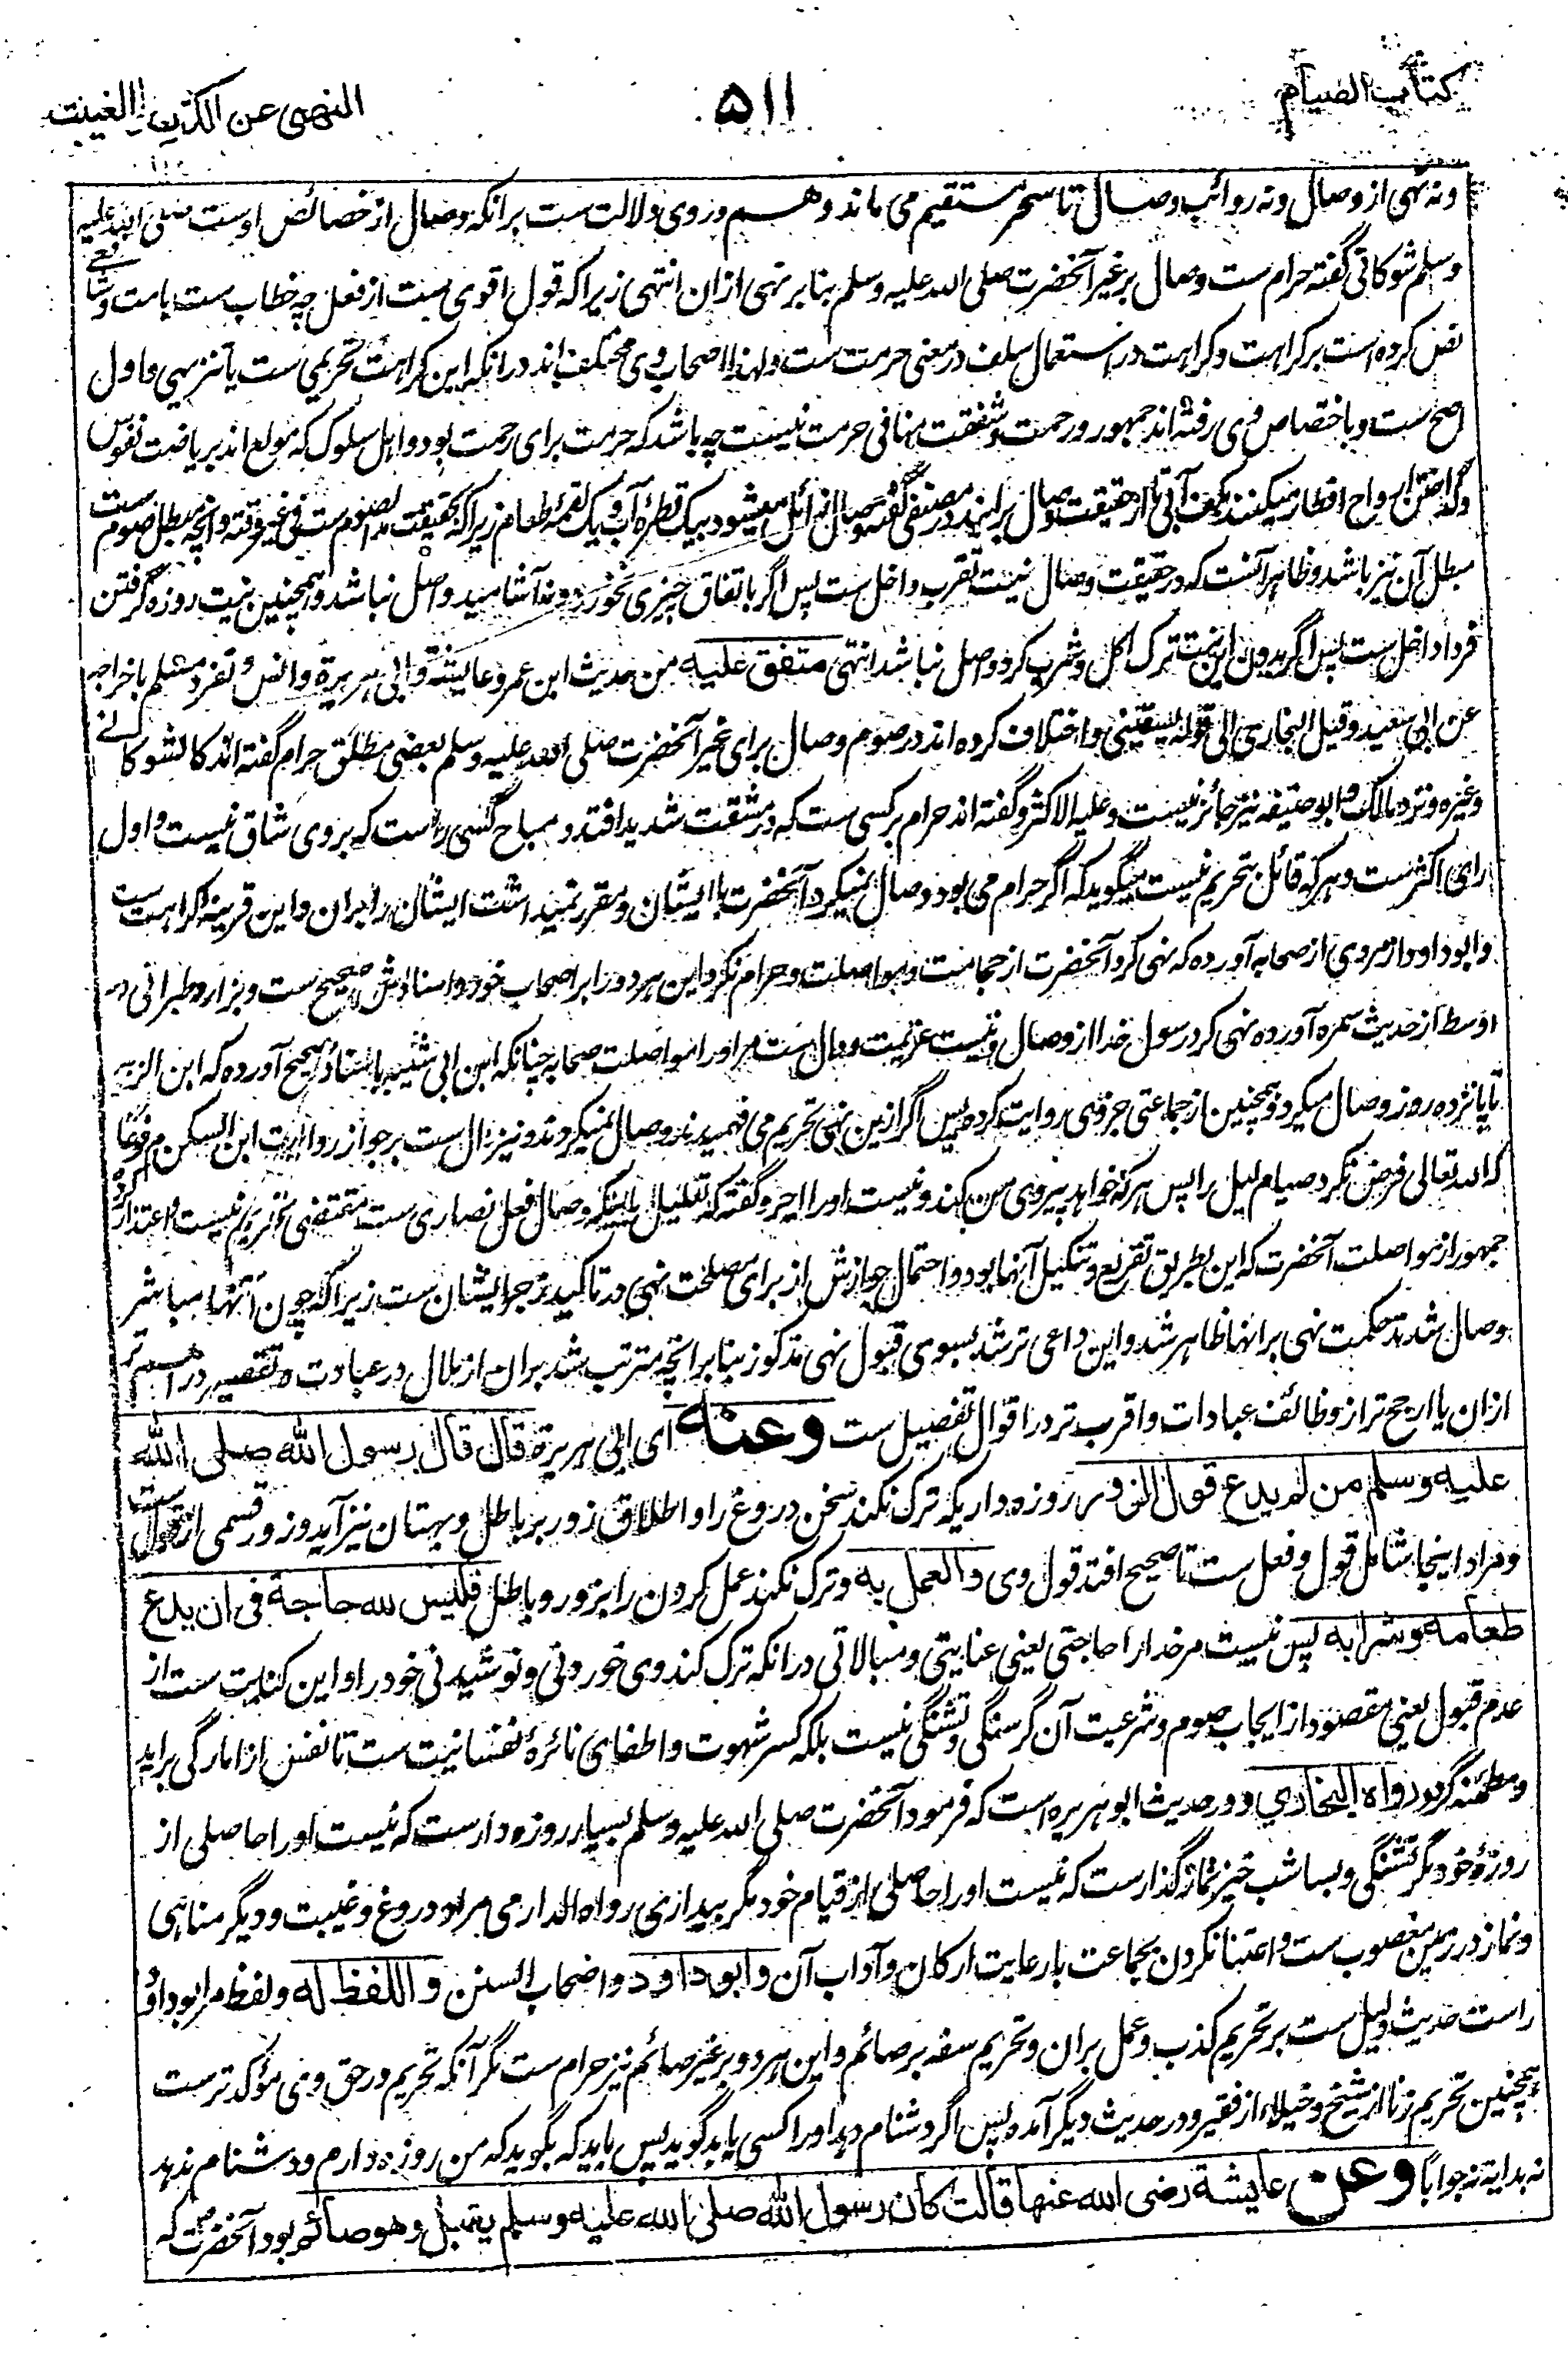 کتاب الصیام
۵۱۱
النهی عن الکذب الغیبت
ونه نهی از وصال ونه روائب وصال تا سحر مستقیم می ماند وهم در وی دلالت ست برانکه وصال از خصائص اوست صلی الله علیه
وسلم شوکانی گفته حرام ست وصال بر غیر آنحضرت صلی الله علیه وسلم بنا بر نهی ازان انتهی زیرا که قول اقوی ست از فعل چه خطاب ست بامت وشافعی
نص کرده است بر کراهت وکراهت در استعمال سلف در معنی حرمت ست ولهذا اصحاب وی مختلف اند در انکه این کراهت تحریمی ست یا تنزیهی واول
اصح ست وباختصاص وی رفته اند جمهور ورحمت وشفقت منافی حرمت نیست چه باشد که حرمت برای رحمت بود واهل سلوک که مولع اند بریاضت نفوس
وگداختن ارواح افطار میکنند بکف آبی تا از حقیقت وصال برایند در مصفی گفته وصال زائل میشود بیک قطرهٔ آب ویک لقمهٔ طعام زیرا که حقیقت صوم ست فی غیر وقته وانچه مبطل صوم ست
مبطل آن نیز باشد وظاهر آنست که در حقیقت وصال نیت تقرب داخل ست پس اگر باتفاق چیزی نخورد ونه آشامید واصل نباشد وهمچنین نیت روزه گرفتن
فردا داخل ست پس اگر بدون این نیت ترک اکل وشرب کرد واصل نباشد انتهی متفق علیه من حدیث ابن عمر وعایشة وابی هریرة وانس وتفرد مسلم باخراجه
عن ابی سعید وقیل البخاری الی قوله یسقینی واختلاف کرده اند در صوم وصال برای غیر آنحضرت صلی الله علیه وسلم بعضی مطلق حرام گفته اند کالشوکانے
وغیره ونزد مالک وابو حنیفه نیز جائز نیست وعلیه الاکثر وگفته اند حرام بر کسی ست که در مشقت شدید افتد ومباح کسی راست که بر وی شاق نیست واول
رای اکثر ست وهر که قائل بتحریم نیست میگوید که اگر حرام می بود وصال نمیکرد آنحضرت با ایشان ومقرر نمیداشت ایشان را بران واین قرینهٔ کراهت ست
وابو داود از مردی از صحابه آورده که نهی کرد آنحضرت از حجامت ومواصلت وحرام نکرد این هر دو را بر اصحاب خود واسنادش صحیح ست وبزار وطبرانی در
اوسط از حدیث سمره آورده نهی کرد رسول خدا از وصال ونیست عزیمت ودال ست مر اورا مواصلت صحابه چنانکه ابن ابی شیبه باسناد صحیح آورده که ابن الزبیر
تا پانزده روز وصال میکرد وهمچنین از جماعتی جز وی روایت کرده پس اگر ازین نهی تحریم می فهمیدند وصال نمیکردند ونیز دال ست بر جواز روایت ابن السکن مرفوعا
که الله تعالی فرض نکرد صیام لیل را پس هر که خواهد پیروی من کند ونیست اورا اجر وگفته که تعلیل باینکه وصال فعل نصاری ست مقتضی تحریم نیست واعتذار کرده
جمهور از مواصلت آنحضرت که این بطریق تقریع وتنکیل آنها بود واحتمال جوازش از برای مصلحت نهی در تاکید زجر ایشان ست زیرا که چون آنها مباشر
وصال شدند حکمت نهی برانها ظاهر شد واین داعی تر شد بسوی قبول نهی مذکور بنا بر انچه مترتب شد بران از ملال در عبادت وتقصیر در اهم تر
ازان یا ارجح تر از وظائف عبادات واقرب تر در اقوال تفصیل ست وعنه ای ابی هریرة قال قال رسول الله صلی الله
علیه وسلم من لم یدع قول الزور روزه داریکه ترک نکند سخن دروغ را واطلاق زور بر باطل وبهتان نیز آید وزور قسمی از قول ست
ومراد اینجا شامل قول وفعل ست تا صحیح افتد قول وی والعمل به وترک نکند عمل کردن را بزور وباطل فلیس لله حاجة فی ان یدع
طعامه وشرابه پس نیست مر خدا را حاجتی یعنی عنایتی ومبالاتی در انکه ترک کند وی خوردنی ونوشیدنی خود را واین کنایت ست از
عدم قبول یعنی مقصود از ایجاب صوم وشرعیت آن گرسنگی وتشنگی نیست بلکه کسر شهوت واطفای نائرهٔ نفسانیت ست تا نفس از امارگی براید
ومطمئنه گردد رواه البخاري ودر حدیث ابو هریره است که فرمود آنحضرت صلی الله علیه وسلم بسیار روزه دارست که نیست اورا حاصلی از
روزهٔ خود مگر تشنگی وبسا شب خیز نمازگذارست که نیست اورا حاصلی از قیام خود مگر بیداری رواه الدارمی مراد دروغ وغیبت ودیگر مناهی
ونماز در زمین مغصوب ست واعتنا نکردن بجماعت یا رعایت ارکان وآداب آن وابو داود واصحاب السنن واللفظ له ولفظ مر ابو داود
راست حدیث دلیل ست بر تحریم کذب وعمل بران وتحریم سفه بر صائم واین هر دو بر غیر صائم نیز حرام ست مگر آنکه تحریم در حق وی مؤکد ترست
همچنین تحریم زنا از شیخ وخیلاء از فقیر ودر حدیث دیگر آمده پس اگر دشنام دهد اورا کسی یا بد گوید پس باید که بگوید که من روزه دارم ودشنام ندهد
نه بدایة نه جوابا وعن عایشة رضی الله عنها قالت کان رسول الله صلی الله علیه وسلم یقبل وهو صائم بود آنحضرت که